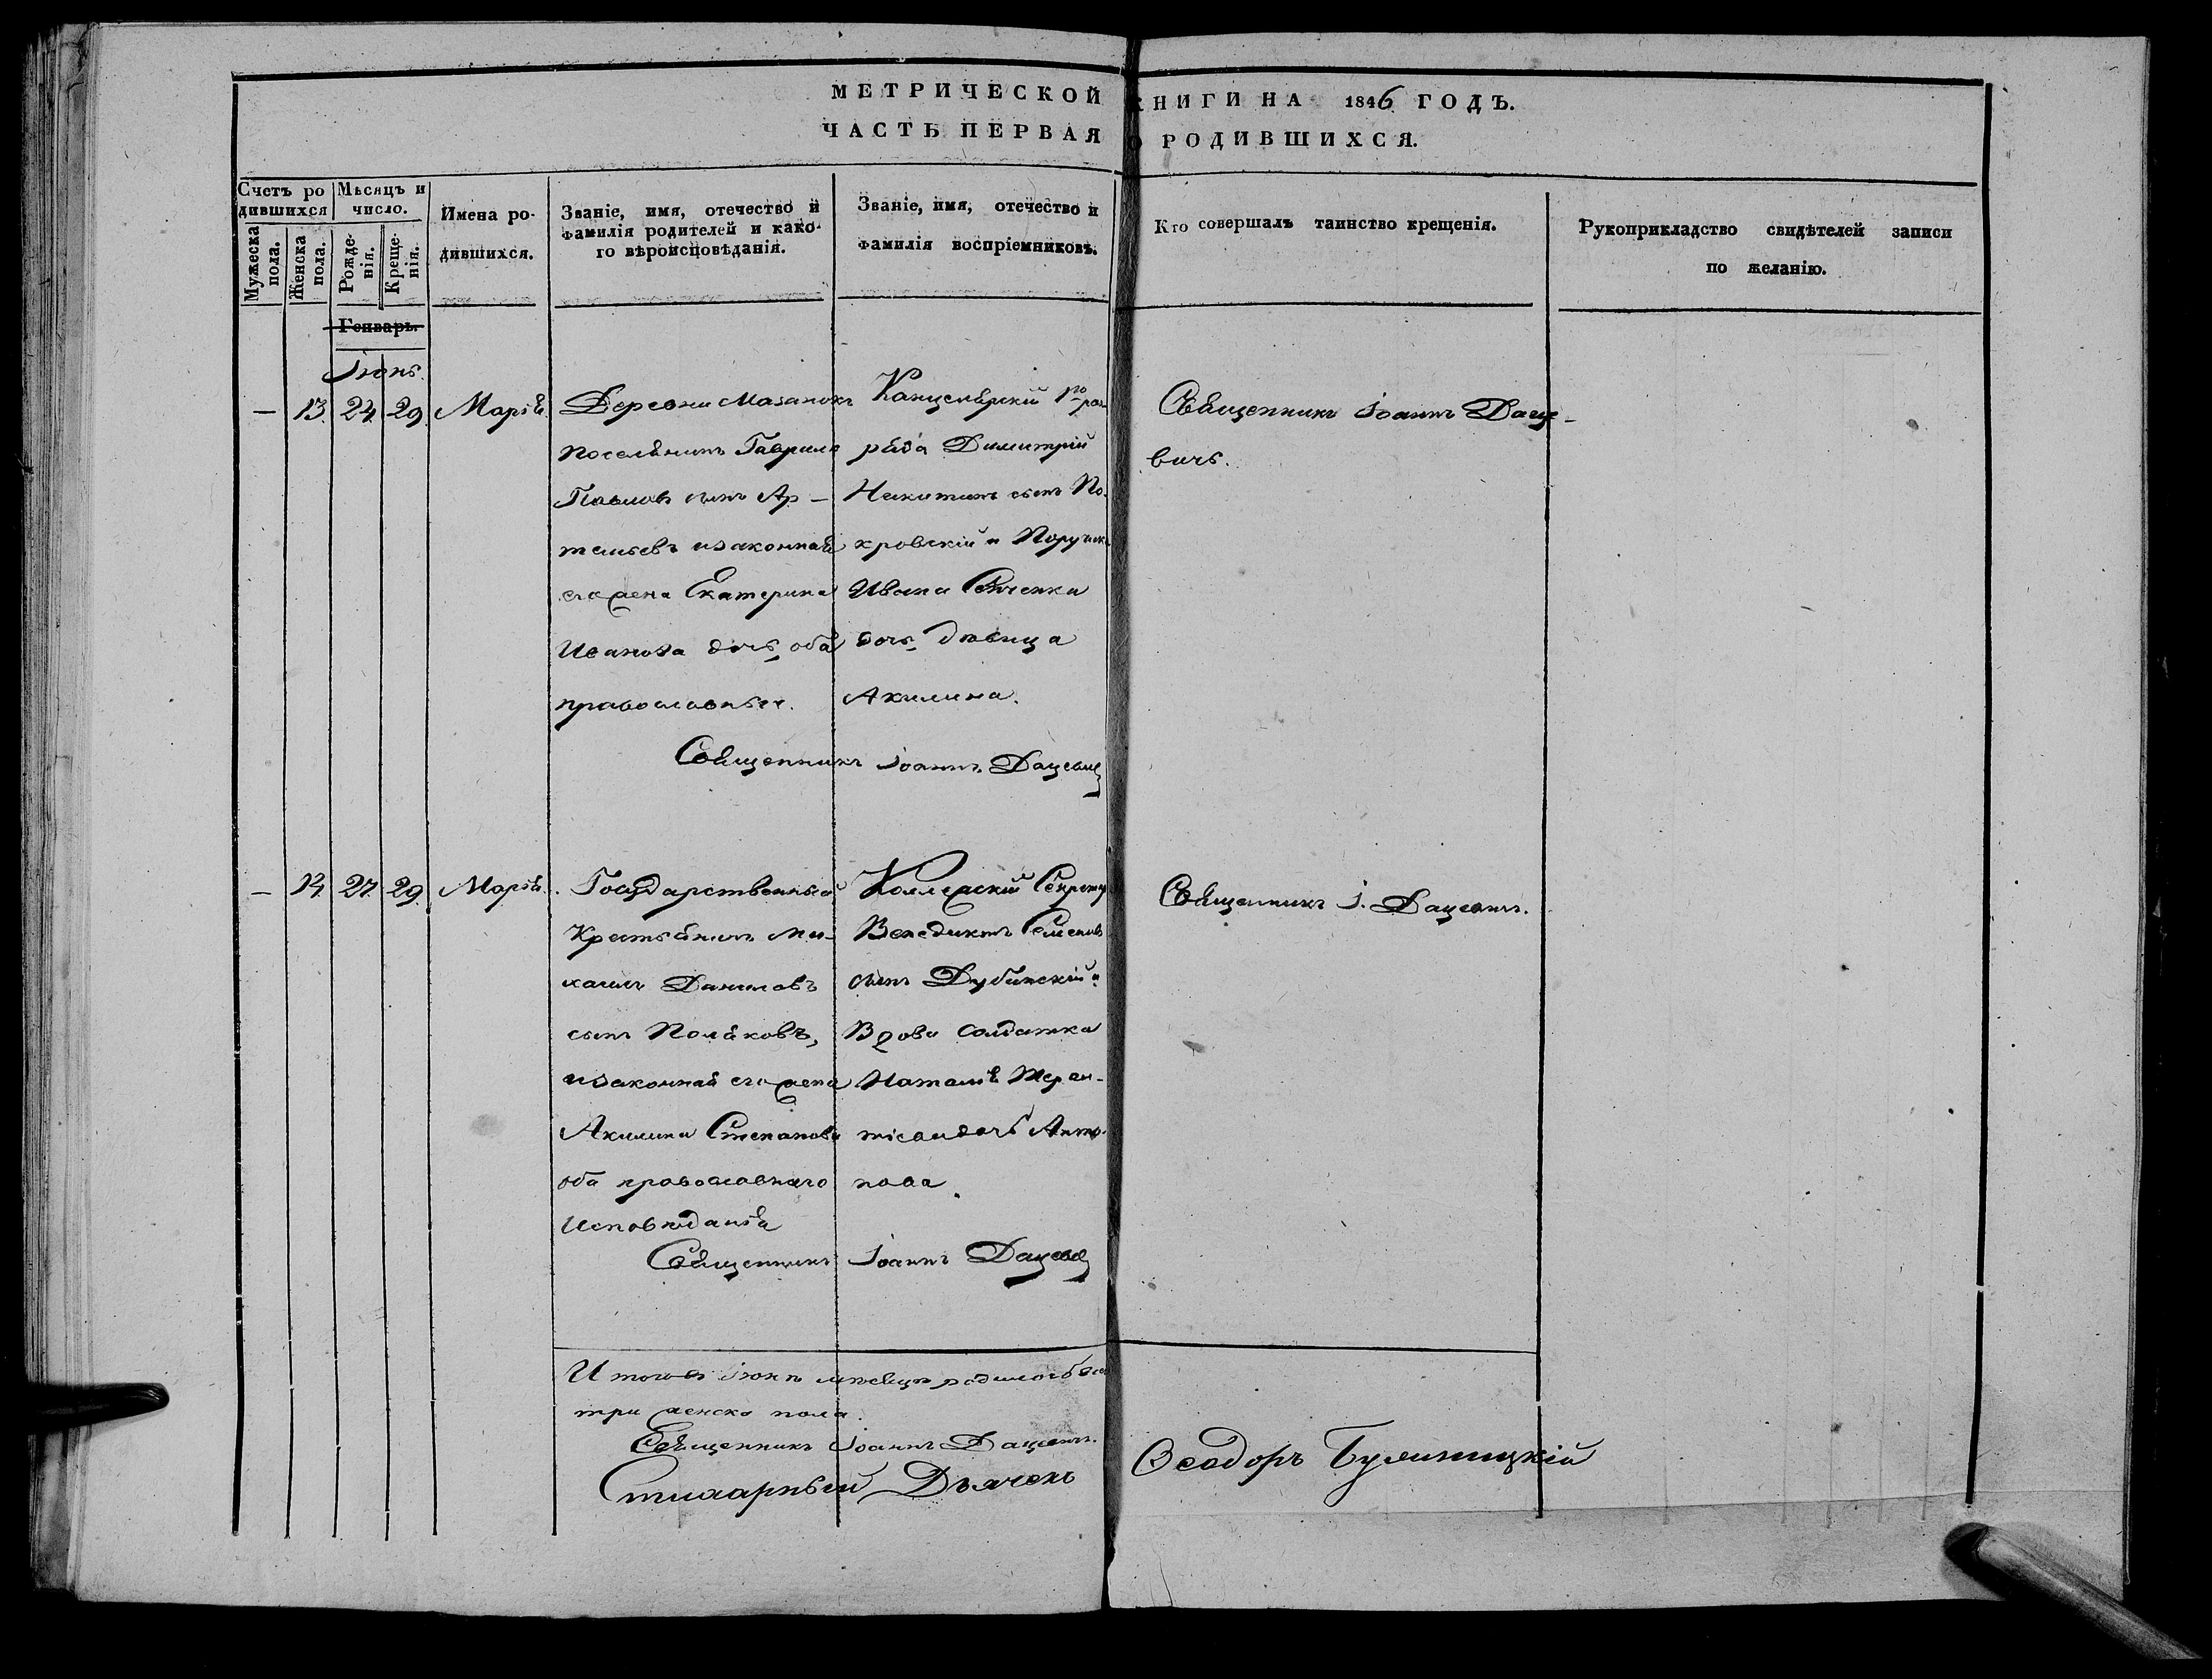 МЕТРИЧЕСКОЙ КНИГИ НА 1846 ГОДЪ.
ЧАСТЬ ПЕРВАЯ О РОДИВШИХСЯ.
Счетъ ро
дившихся
Мужеска
пола.
Женска
пола.
Мѣсяцъ и
число.
Рожде-
нія.
Креще-
нія.
Имена ро-
дившихся.
Званіе, имя, отечество и
фамилія родителей и како-
го вѣроисповѣданія.
Званіе, имя, отечество и
фамилія воспріемниковъ.
Кто совершалъ таинство крещенія.
Рукоприкладство свидѣтелей записи
по желанію.
Генварь.
Іюнь.
— 13. 24. 29. Марія.
Деревни Мазанокъ
поселянинъ Гаврилъ
Павловъ сынъ Ар-
темьевъ и законная
его жена Екатерина
Иванова дочь, оба
православные.
Канцелярскій 1го раз-
ряда Димитрій
Никитинъ сынъ По-
кровскій и Поручика
Ивана Сенченки
дочь, дѣвица
Акилина.
Священникъ Іоаннъ Даце-
вичъ.
Священникъ Іоаннъ Дацевич
— 14. 27. 29. Марія.
Государственный
Крестьянинъ Ми-
хаилъ Даниловъ
сынъ Поляковъ,
и законная его жена
Акилина Степанова
оба православнаго
исповѣданія
Коллежскій Секретар
Венедиктъ Семеновъ
сынъ Дубинскій и
Вдова солдатка
Наталія Терен-
тіева дочь Анто-
нова.
Священникъ І. Дацевичъ.
Священникъ Іоаннъ Дацевич
И того въ Іюнѣ мѣсяцѣ родилось
три женска пола.
Священникъ Іоаннъ Дацевичъ.
Стихарный Дьячекъ Ѳеодоръ